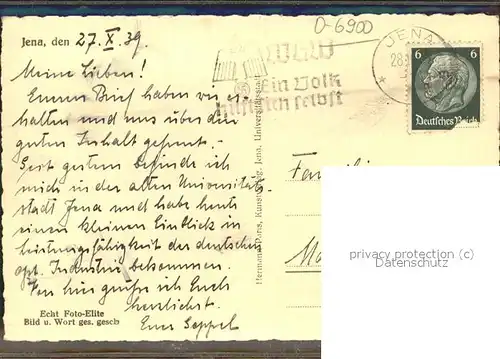 Jena, den 27. X. 39.
Meine Lieben!
Euren Brief haben wir er-
halten und uns über den
guten Inhalt gefreut.
Seit gestern befinde ich
mich in der alten Universitäts-
stadt Jena und habe heute
einen kleinen Einblick in
Leistungsfähigkeit der deutschen
opt. Industrie bekommen.
Von hier grüße ich Euch
herzlichst.
Euer Seppel
Echt Foto-Elite
Bild u. Wort ges. gesch
O-6900
WHW
Ein Volk
hilft sich selbst
JENA
28.
6 6
Deutsches Reich
Hermann Paris, Kunstverlag, Jena, Universitätsstadt
Familie
privacy protection (c)
Datenschutz